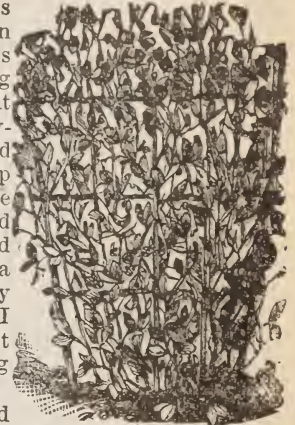 s
n
s
g
t
-
d
p
e
d
d
a
y
I
t
g
d